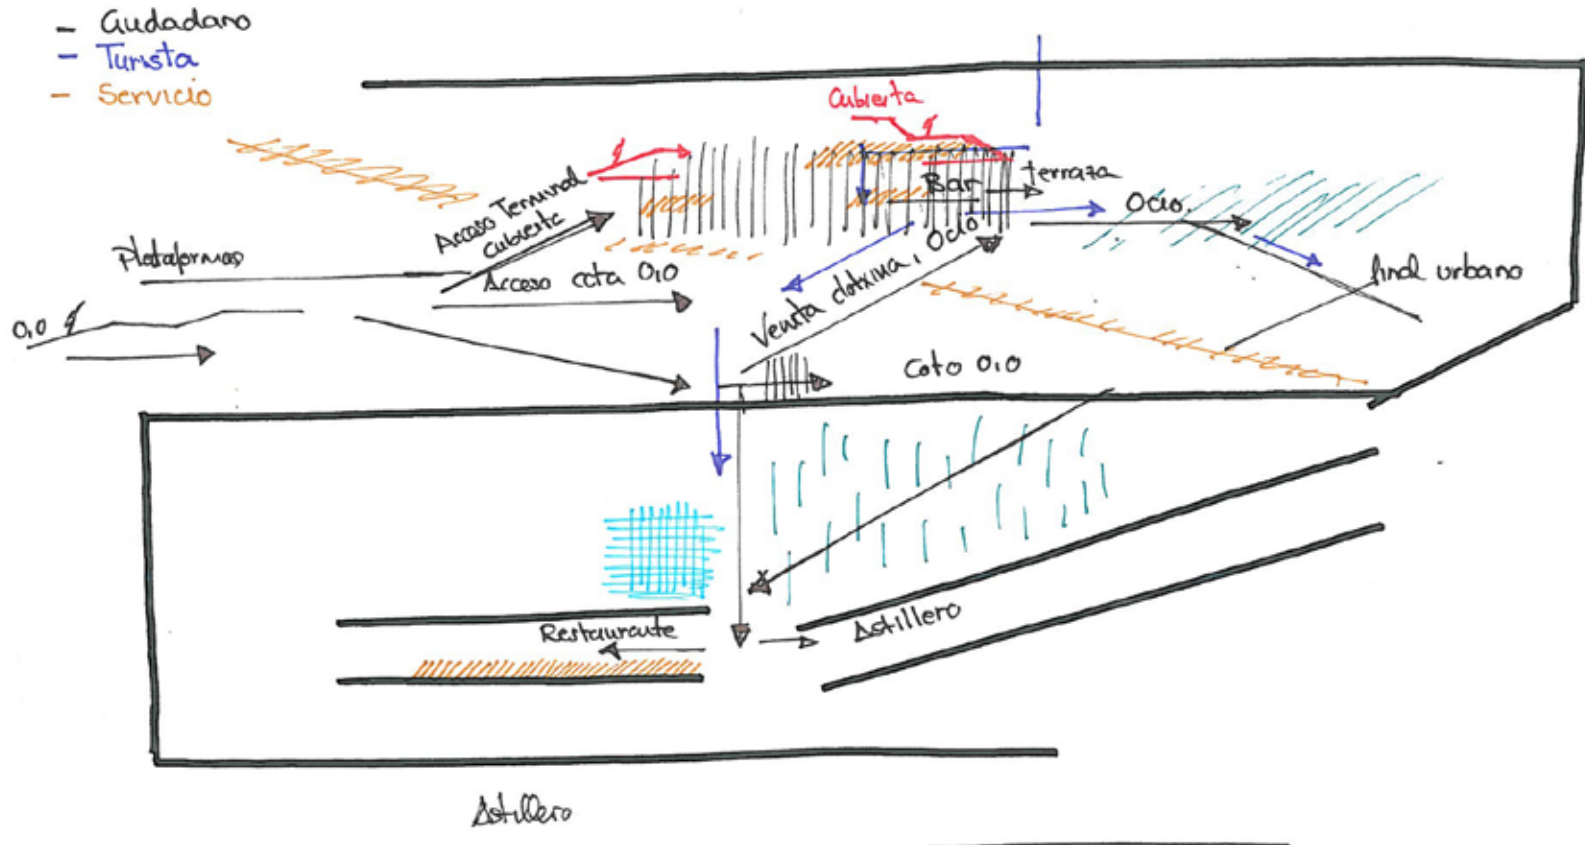 - Ciudadano
- Turista
- Servicio
Cubierta
Acceso Terminal
cubierta
Bar
terraza
Ocio.
Plataformas
Acceso cota 0,0
Venta clotxina, Ocio
final urbano
0,0
Cota 0,0
Restaurante
Astillero
Astillero